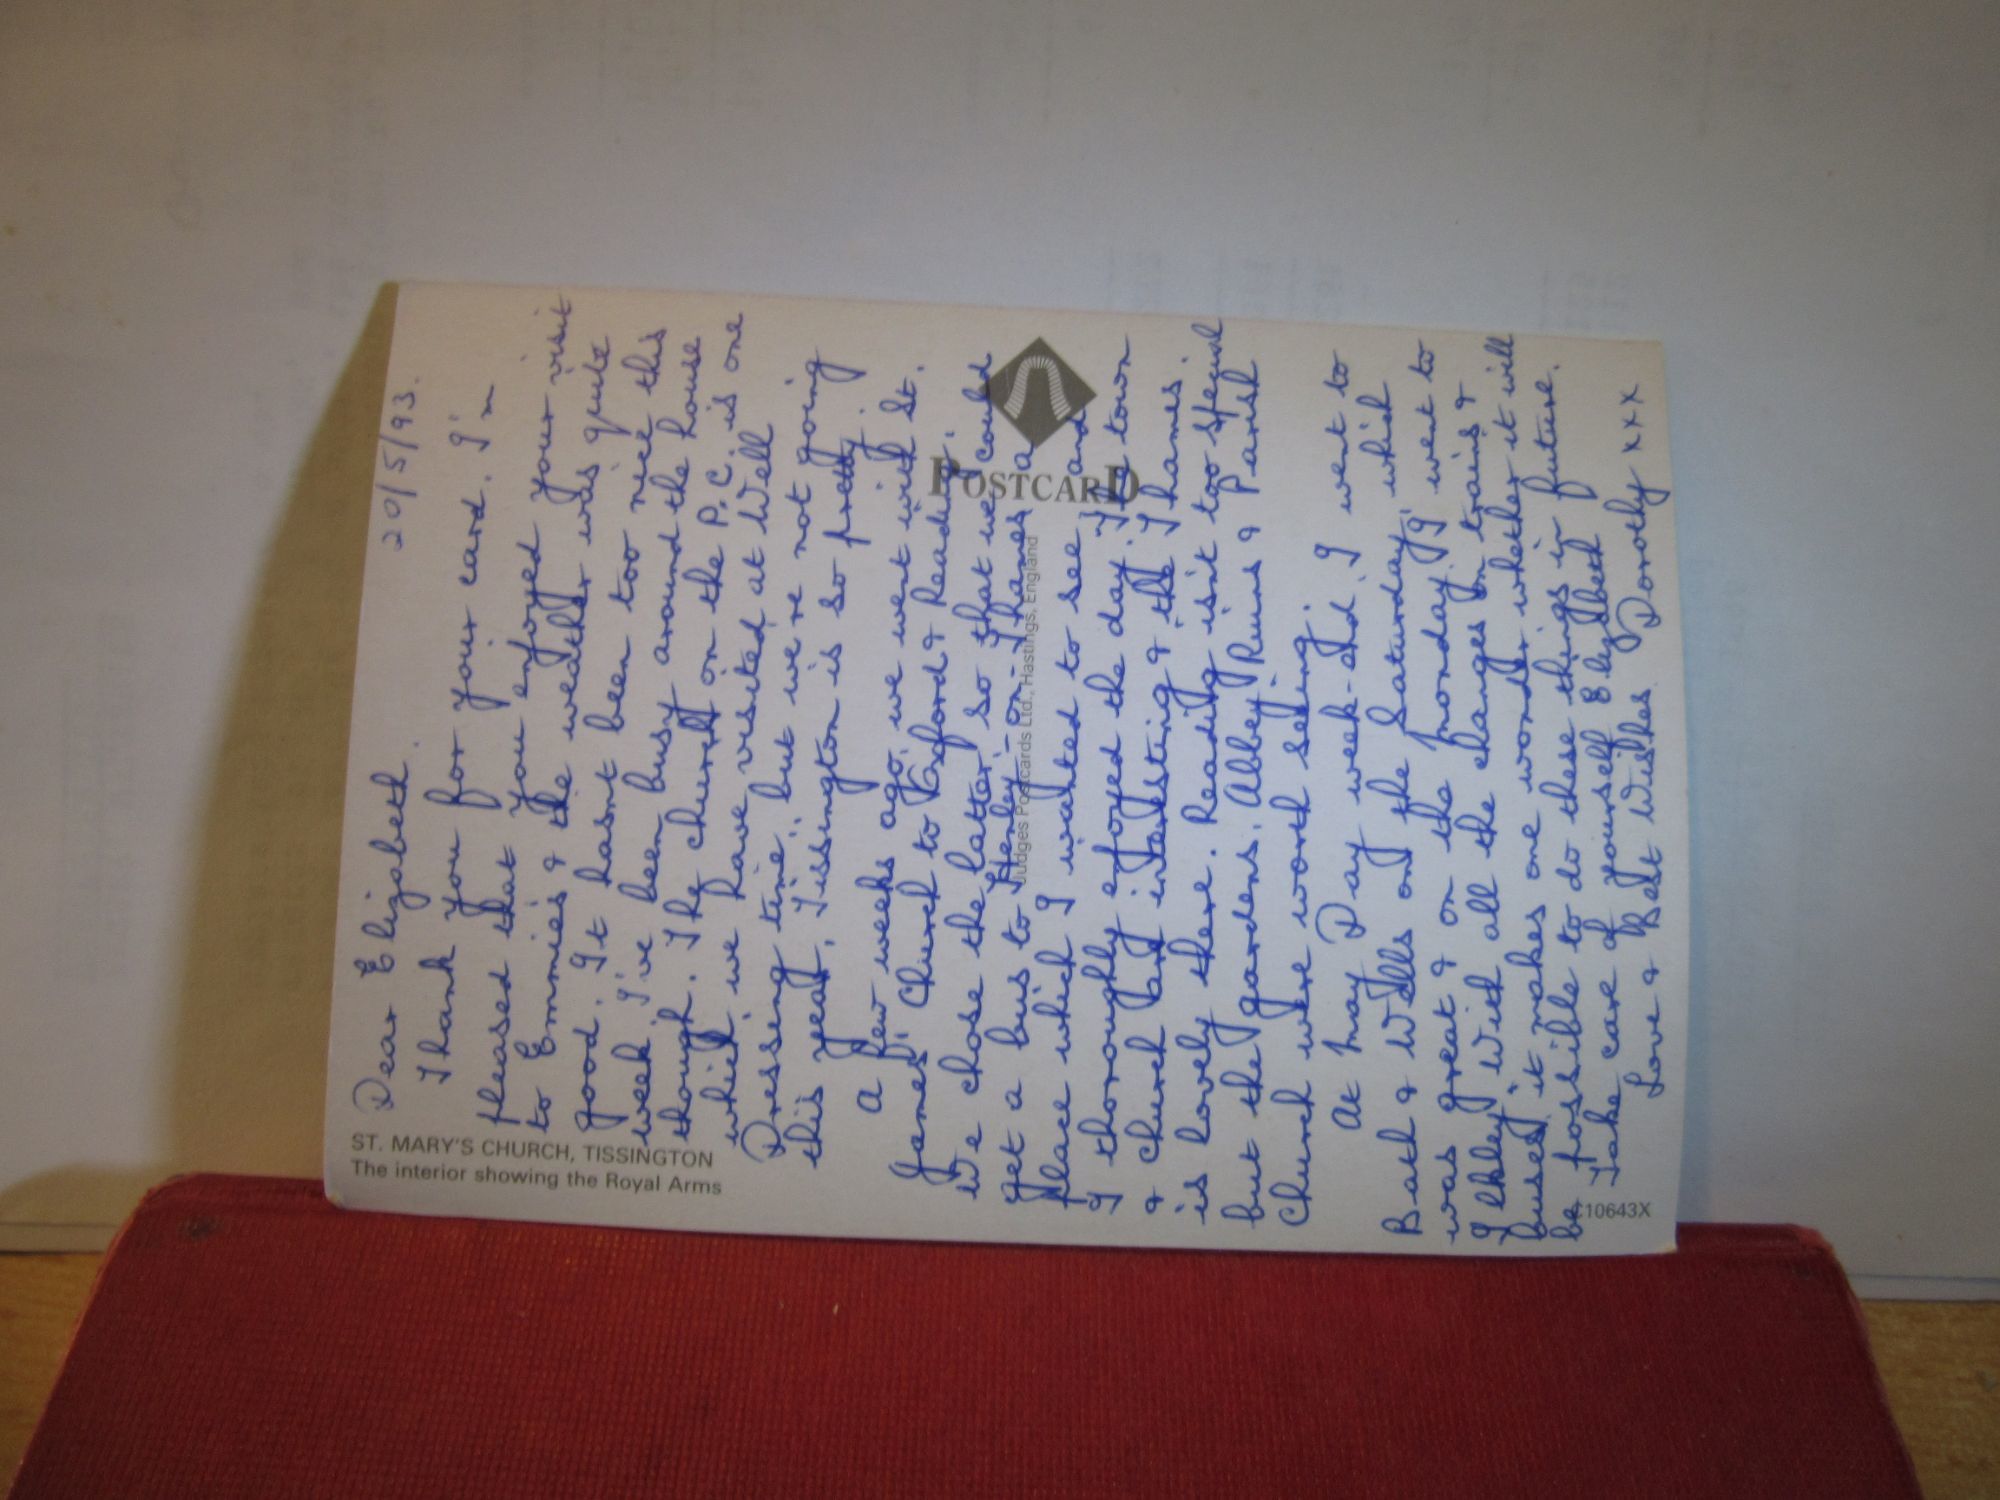 ST. MARY'S CHURCH, TISSINGTON
The interior showing the Royal Arms
20/5/93.
Dear Elizabeth.
Thank you for your card. I'm
pleased that you enjoyed your visit
to Emmie's & the weather was quite
good. It hasn't been too nice this
week, I've been busy around the house
though. The church on the P.C. is one
which we have visited at Well
Dressing time, but we're not going
this year, Tissington is so pretty.
A few weeks ago, we went with St.
James' Church to Oxford & Reading.
We chose the latter so that we could
get a bus to Henley-on-Thames a
place which I wanted to see and
I thoroughly enjoyed the day. The town
& church are interesting & the Thames
is lovely there. Reading isn't too special
but the gardens, Abbey Ruins & Parish
Church were worth seeing.
At May Day week-end I went to
Bath & Wells on the Saturday which
was great & on the Monday I went to
Ilkley. With all the changes on trains &
buses it makes one wonder whether it will
be possible to do these things in future.
Take care of yourself Elizabeth
Love & Best Wishes Dorothy xxx
POSTCARD
Judges Postcards Ltd., Hastings, England
C10643X